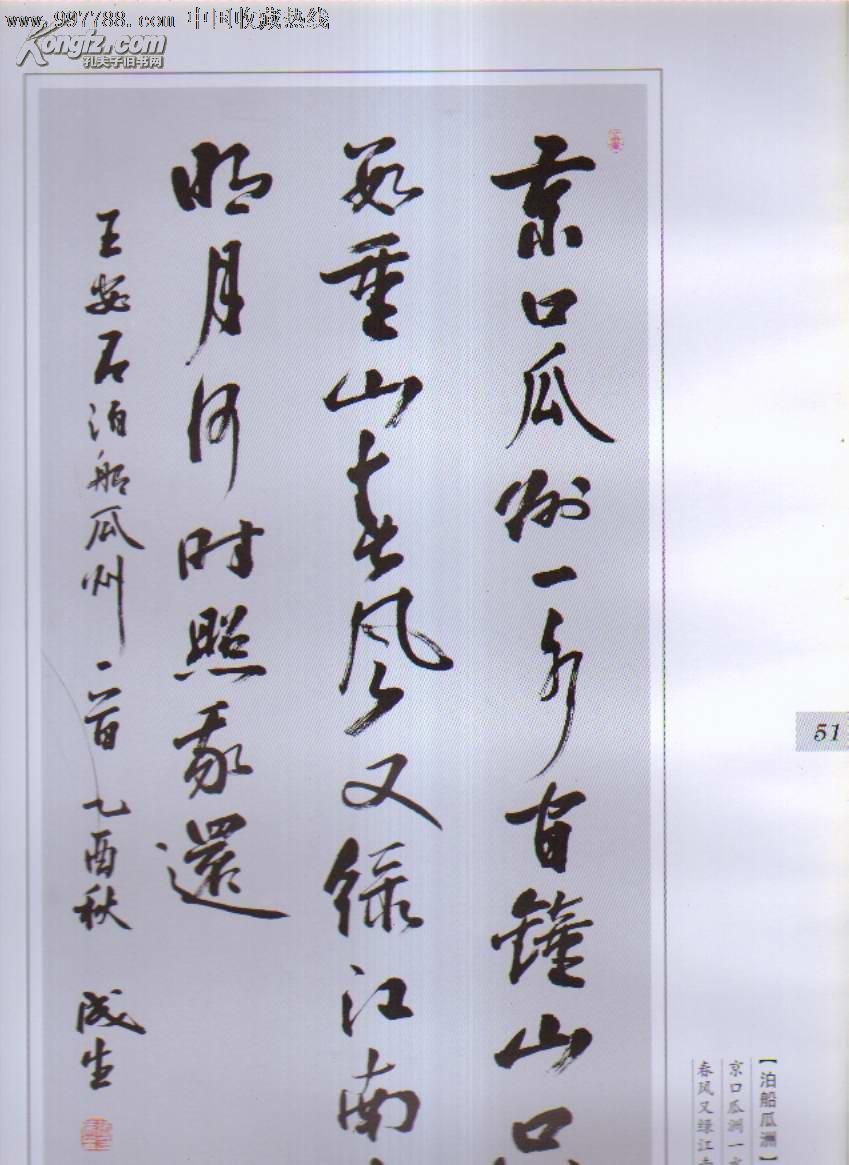 www.997788.com 中国收藏热线
Kongfz.com
孔夫子旧书网
京口瓜洲一水间鐘山只
数重山春风又绿江南
明月何时照我還
王安石泊船瓜州一首 乙酉秋 成生
51
【泊船瓜洲】
京口瓜洲一水
春风又绿江